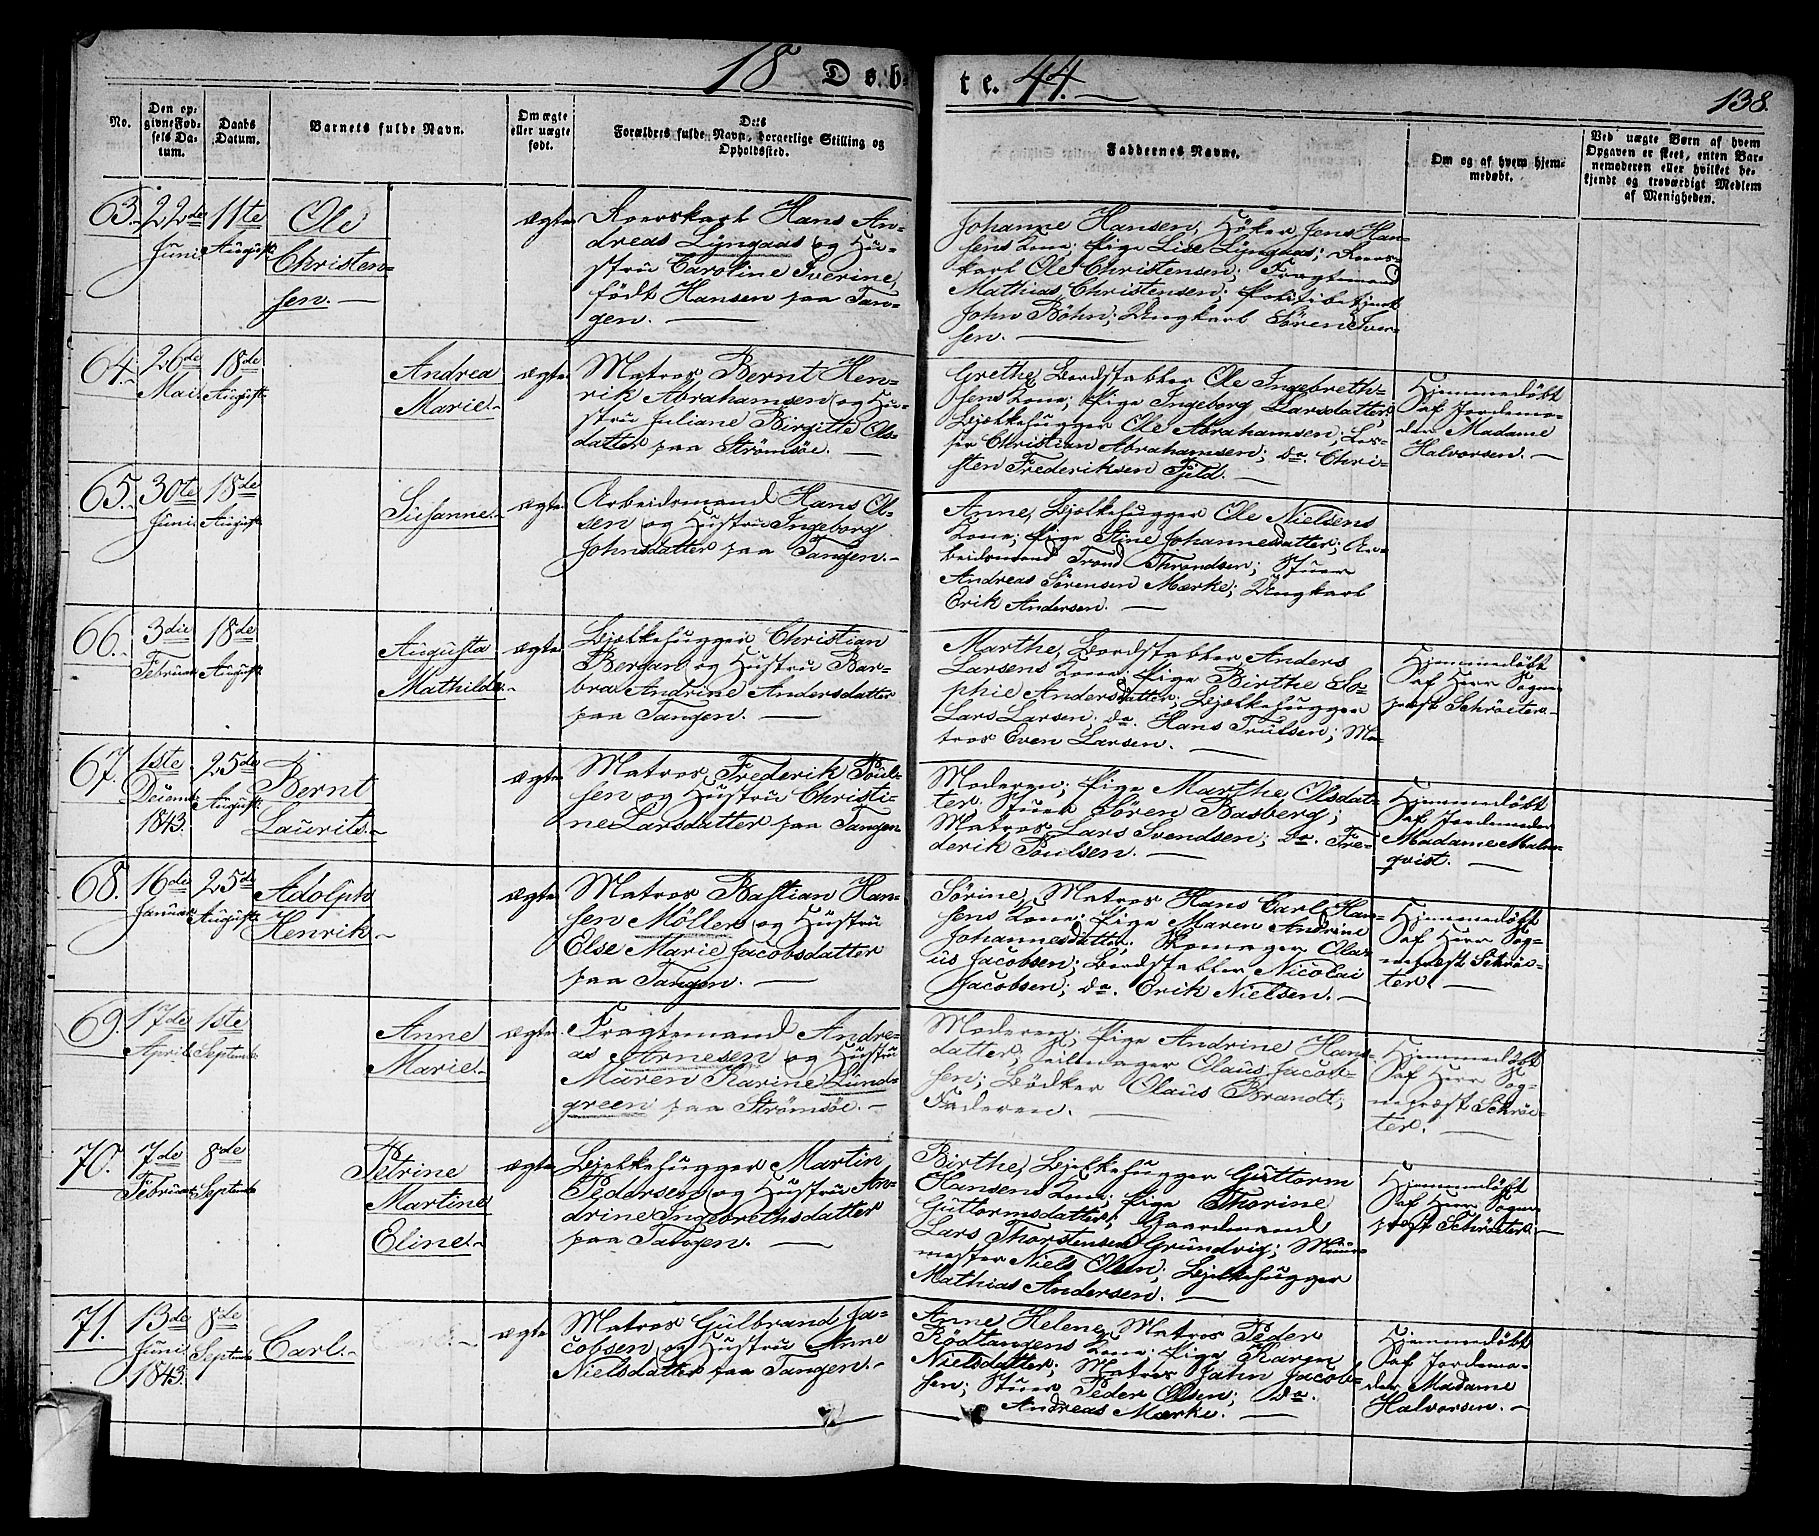 18 Døb-
te. 44.
138.
No.
Den op-
givne Fød-
sels Da-
tum.
Daabs
Datum.
Barnets fulde Navn.
Om ægte
eller uægte
født.
Dets
Forældres fulde Navn, borgerlige Stilling og
Opholdssted.
Faddernes Navne.
Om og af hvem hjem-
medøbt.
Ved uægte Børn af hvem
Opgaven er skeet, enten Bar-
nemoderen eller hvilket be-
kjendt og troværdigt Medlem
af Menigheden.
63.
22de
Juni
11te
August
Ole
Christen-
sen.
ægte
Roerskarl Hans An-
dreas Lyngaas og Hu-
stru Caroline Iverine,
født Hansen paa Tan-
gen.
Johanne Hansen, Höker Jens Han-
sens Kone; Pige Lise Lyngaas; Roers-
karl Ole Christensen; Fragtemand
Mathias Christensen; Politibetjent
John Böhn; Ungkarl Sören Iver-
sen.
64.
26de
Mai
18de
August
Andrea
Marie.
ægte
Matros Bernt Hen-
rik Abrahamsen og Hu-
stru Juliane Birgitte Ols-
datter paa Strömsöe.
Grethe, Bordstabler Ole Ingebreth-
sens Kone; Pige Ingeborg Larsdatter;
Bjelkehugger Ole Abrahamsen; Los-
ser Christian Abrahamsen; do. Chri-
sten Frederiksen Fjeld.
Hjemmedöbt
af Jordemo-
der Madame
Halvorsen.
65.
30te
Juni
18de
August
Susanne.
ægte
Arbeidsmand Hans Ol-
sen og Hustru Ingeborg
Johnsdatter paa Tangen.
Anne, Bjelkehugger Ole Nielsens
Kone; Pige Stine Johannesdatter; Ar-
beidsmand Trond Throndsen; Stuer
Andreas Sörensen Mærke; Ungkarl
Erik Andersen.
66.
3die
Februar
18de
August
Augusta
Mathilde.
ægte
Bjelkehugger Christian
Bergan og Hustru Bar-
bra Andrine Andersdatter
paa Tangen.
Marthe, Bordstabler Anders
Larsens Kone; Pige Birthe So-
phie Andersdatter; Bjelkehugger
Lars Larsen; do. Hans Trulsen; Ma-
tros Even Larsen.
Hjemmedöbt
af Herr Sogne-
præst Schröeter.
67.
1ste
Decemb.
1843.
25de
August
Bernt
Laurits.
ægte
Matros Frederik Poul-
sen og Hustru Christi-
ne Larsdatter paa Tangen
Moderen; Pige Marthe Olsdat-
ter; Stuer Sören Basberg;
Matros Lars Svendsen; do. Fre-
derik Poulsen.
Hjemmedöbt
af Jordemoder
Madame Malm-
qvist.
68.
16de
Januar
25de
August
Adolph
Henrik.
ægte
Matros Bastian Han-
sen Möller og Hustru
Else Marie Jacobsdatter
paa Tangen.
Sörine, Matros Hans Carl Han-
sens Kone; Pige Maren Andrine
Johannesdatter; Skomager Ola-
us Jacobsen; Bordstabler Nicolai
Jacobsen; do. Erik Nielsen.
Hjemmedöbt
af Herr Sog-
nepræst Schröe-
ter.
69.
17de
April
1ste
Septemb.
Anne
Marie.
ægte
Fragtemand Andre-
as Arnesen og Hustru
Maren Karine Lund-
green paa Strömsöe.
Moderen; Pige Andrine Hans-
datter; Seilmager Olaus Jacob-
sen; Bödker Olaus Brandt;
Faderen.
Hjemmedöbt
af Herr Sog-
nepræst Schröe-
ter.
70.
7de
Februar
8de
Septemb.
Petrine
Martine
Eline.
ægte
Bjelkehugger Martin
Pedersen og Hustru An-
drine Ingebrethsdatter
paa Tangen.
Birthe, Bjelkehugger Guttorm
Hansens Kone; Pige Thorine
Guttormsdatter; Gaardmand
Lars Thorstensen Grundvig; Muur-
mester Niels Olsen; Bjelkehugger
Mathias Andersen.
Hjemmedöbt
af Herr Sogne-
præst Schröeter.
71.
13de
Juni
1843.
8de
Septemb.
Carl.
ægte
Matros Gulbrand Ja-
cobsen og Hustru Anne
Nielsdatter paa Tangen.
Anne Helene, Matros Peder
Rödtangens Kone; Pige Karen
Nielsdatter; Matros John Jacob-
sen; Stuer Peder Olsen; do.
Andreas Mærke.
Hjemmedöbt
af Jordemo-
der Madame
Halvorsen.